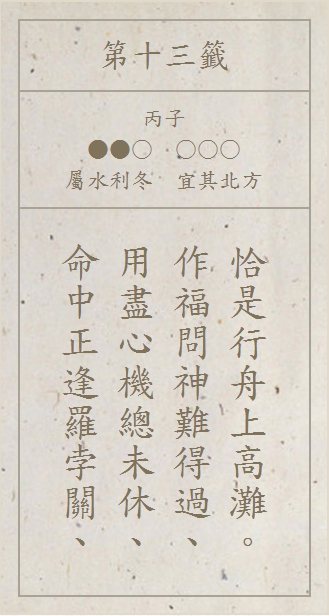 第十三籤
丙子
●●○ ○○○
屬水利冬 宜其北方
命中正逢羅孛關、
用盡心機總未休、
作福問神難得過、
恰是行舟上高灘。